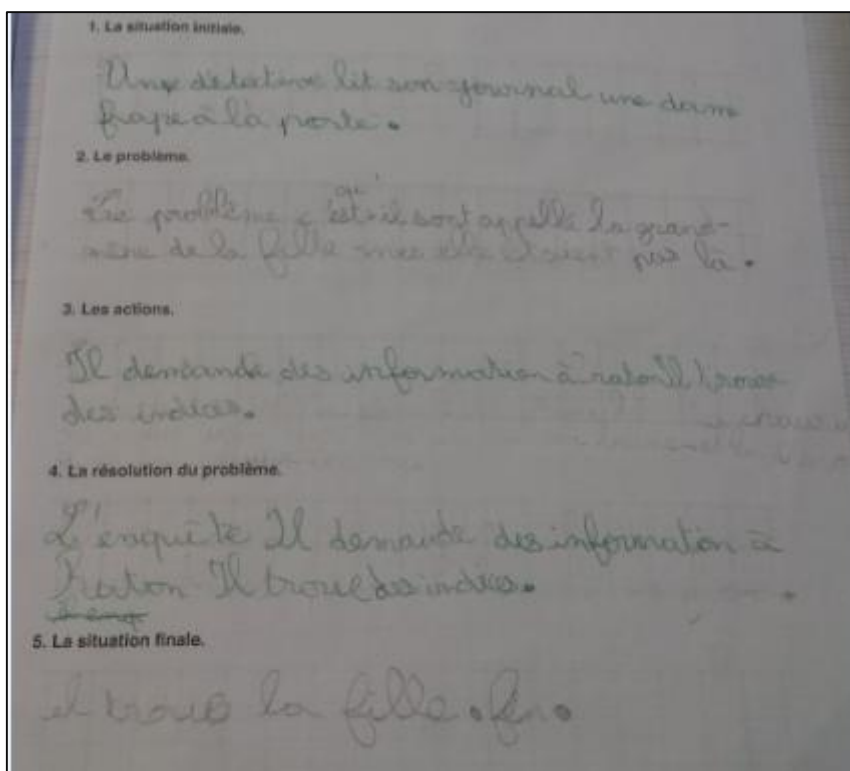 1. La situation initiale.
Une détective lit son journal une dame
frape à la porte.
2. Le problème.
qu'
Le problème c'est il sont appelle la grand-
mère de la fille mes elle étaient pas là.
3. Les actions.
Il demande des information à raton Il trouve
des indices.
4. La résolution du problème.
L'enquête Il demande des information à
raton Il trouve des indices.
5. La situation finale.
il trouve la fille. fin.